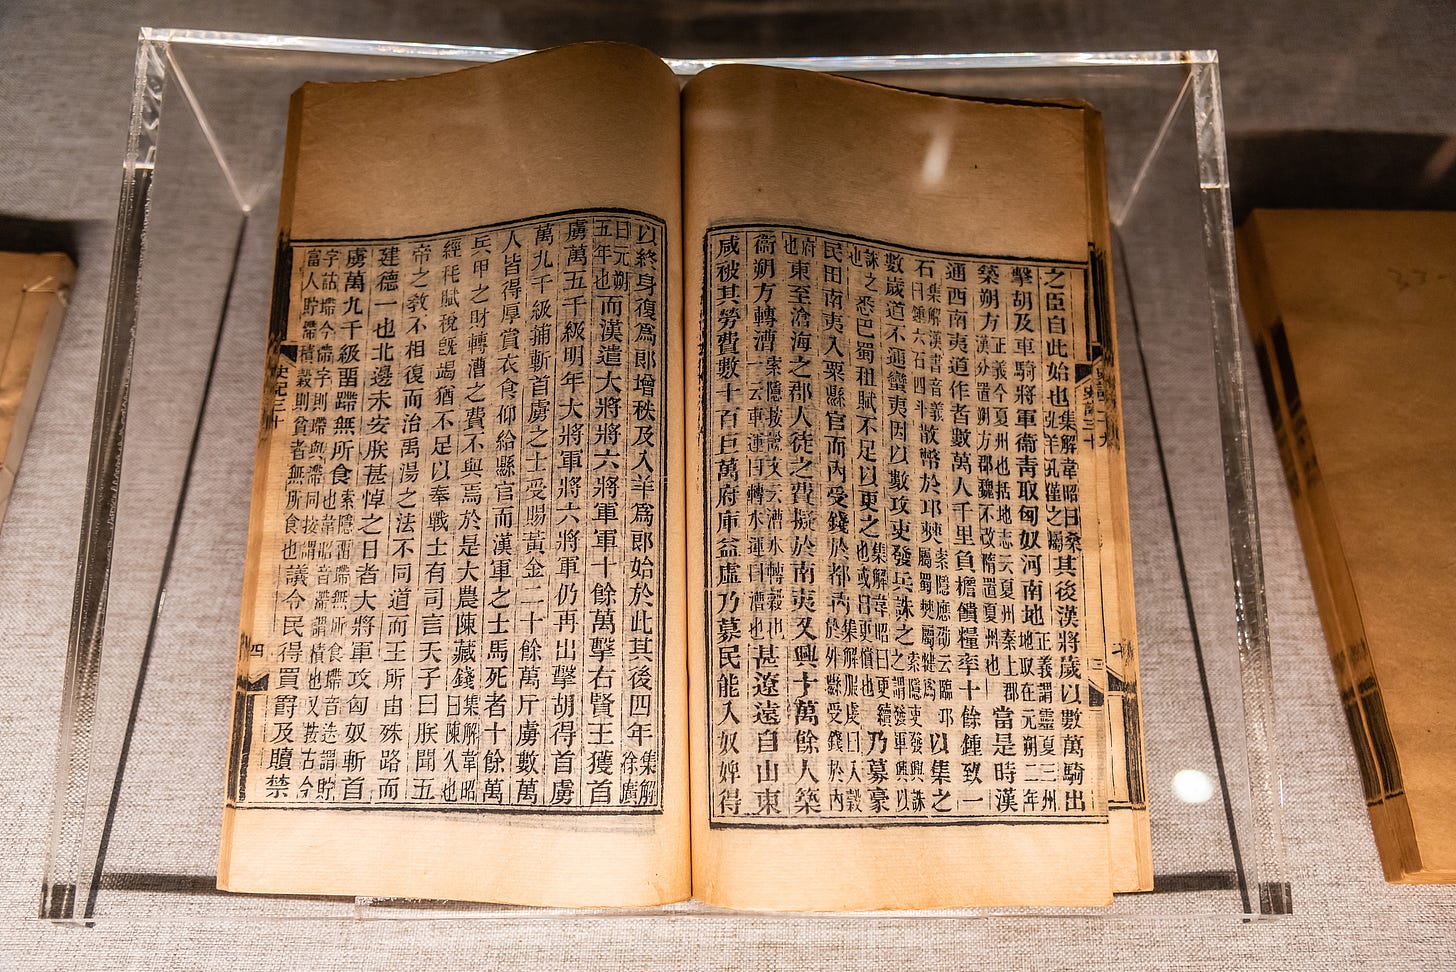 之臣自此始也集解韋昭曰桑弘羊孔僅之屬其後漢將歲以數萬騎出
擊胡及車騎將軍衞青取匈奴河南地正義謂靈夏三州地取在元朔二年
築朔方正義今夏州也括地志云夏州秦上郡漢分置朔方郡魏不改隋置夏州也當是時漢
通西南夷道作者數萬人千里負擔饋糧率十餘鍾致一
石集解漢書音義曰鍾六石四斗散幣於邛僰索隱應劭云臨邛屬蜀僰屬犍爲以集之
數歲道不通蠻夷因以數攻吏發兵誅之索隱吏發興誅之謂發軍興以
誅之也悉巴蜀租賦不足以更之集解韋昭曰更續也或曰更償也乃募豪
民田南夷入粟縣官而內受錢於都內集解服虔曰入穀於外縣受錢於內
府也東至滄海之郡人徒之費擬於南夷又興十萬餘人築
衞朔方轉漕索隱按說文云漕水轉穀也一云車運曰轉水運曰漕也甚遼遠自山東
咸被其勞費數十百巨萬府庫益虛乃募民能入奴婢得
以終身復爲郎增秩及入羊爲郎始於此其後四年集解徐廣
曰元朔五年也而漢遣大將將六將軍軍十餘萬擊右賢王獲首
虜萬五千級明年大將軍將六將軍仍再出擊胡得首虜
萬九千級捕斬首虜之士受賜黃金二十餘萬斤虜數萬
人皆得厚賞衣食仰給縣官而漢軍之士馬死者十餘萬
兵甲之財轉漕之費不與焉於是大農陳藏錢集解韋昭曰陳久也
經秏賦稅旣竭猶不足以奉戰士有司言天子曰朕聞五
帝之敎不相復而治禹湯之法不同道而王所由殊路而
建德一也北邊未安朕甚悼之日者大將軍攻匈奴斬首
虜萬九千級留蹛無所食索隱留蹛無所食蹛音迭謂貯也韋昭音滯謂積也又按古今
字詁蹛今滯字則蹛與滯同按謂富人貯滯積穀則貧者無所食也議令民得買爵及贖禁
史記三十
四